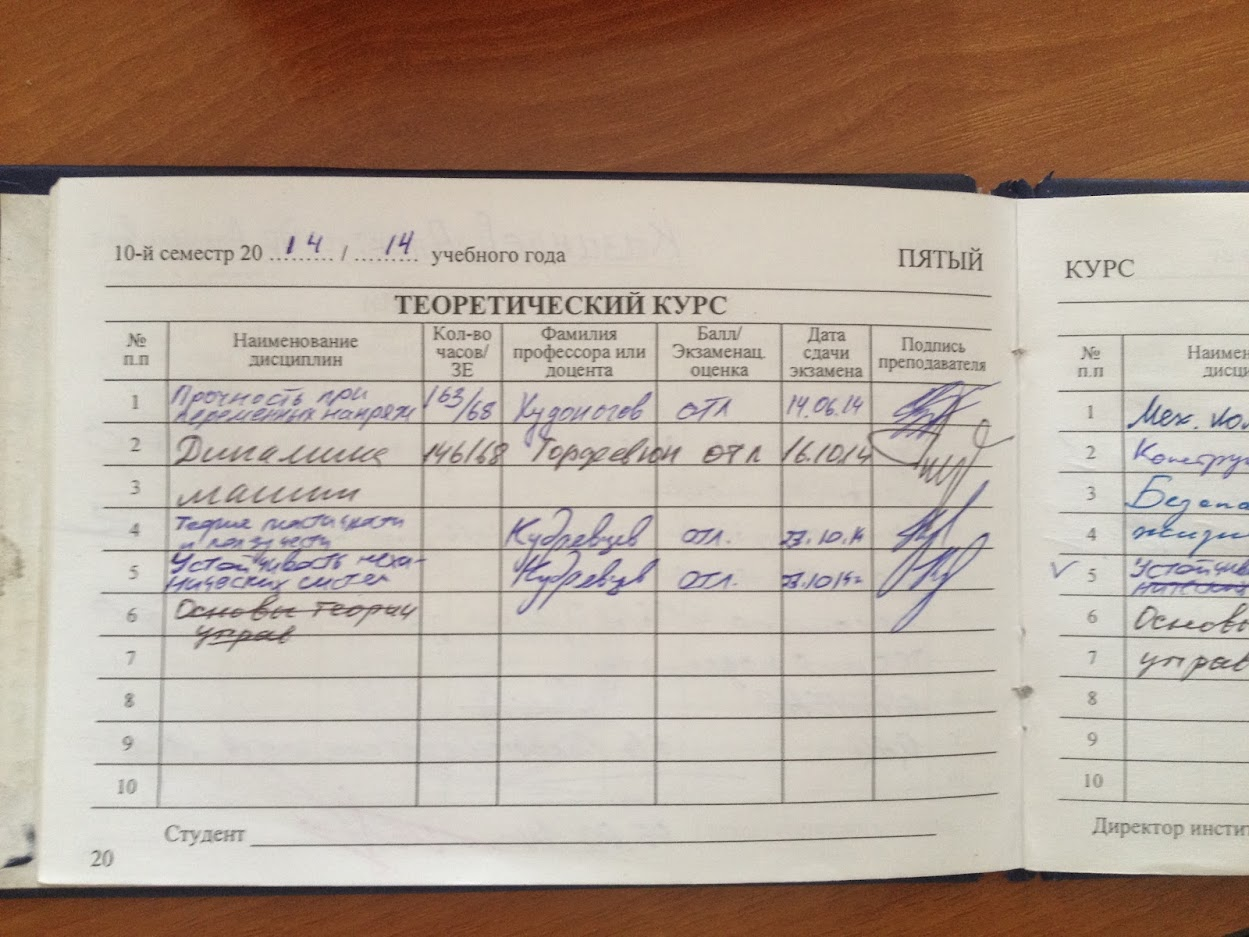 10-й семестр 20 14 / 14 учебного года
ПЯТЫЙ
ТЕОРЕТИЧЕСКИЙ КУРС
№ п.п
Наименование дисциплин
Кол-во часов/ ЗЕ
Фамилия профессора или доцента
Балл/ Экзаменац. оценка
Дата сдачи экзамена
Подпись преподавателя
1 Прочность при
переменных напряж 163/68 Худоногов отл 14.06.14
2 Динамика 146/68 отл 16.10.14
3 машин
4 Теория пластичности
и ползучести Кудрявцев отл. 23.10.14
5 Устойчивость меха-
нических систем Кудрявцев отл. 23.10.14г
6 Основы теории
управ
7
8
9
10
Студент
20
КУРС
№ п.п
Наимен
дисц
1 Мех.
2 Констру
3 Безопа
4 жизн
5 Устойчив
6 Основы
7 управ
8
9
10
Директор инстит